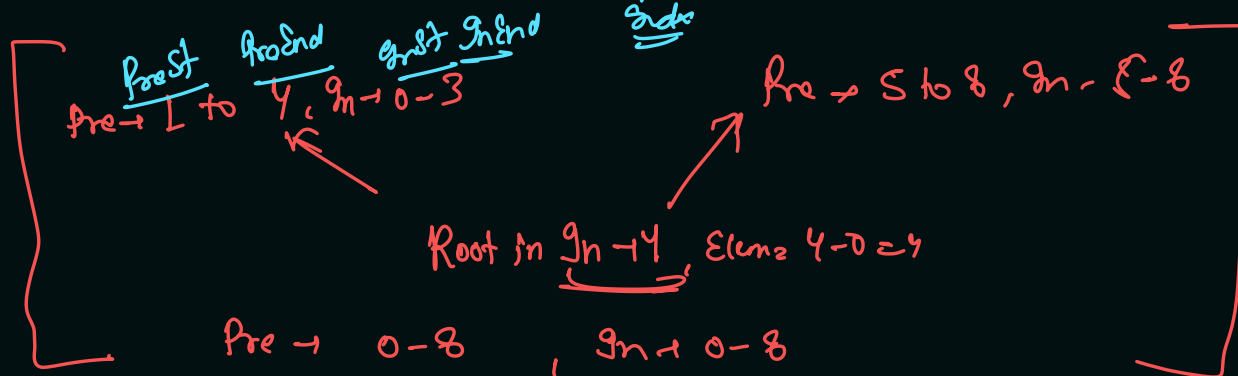 PreSt PreEnd InSt InEnd Index
Pre → 1 to 4, In → 0-3
Pre → 5 to 8, In - 5-8
Root in In → 4, Elem = 4-0 = 4
Pre → 0-8, In → 0-8